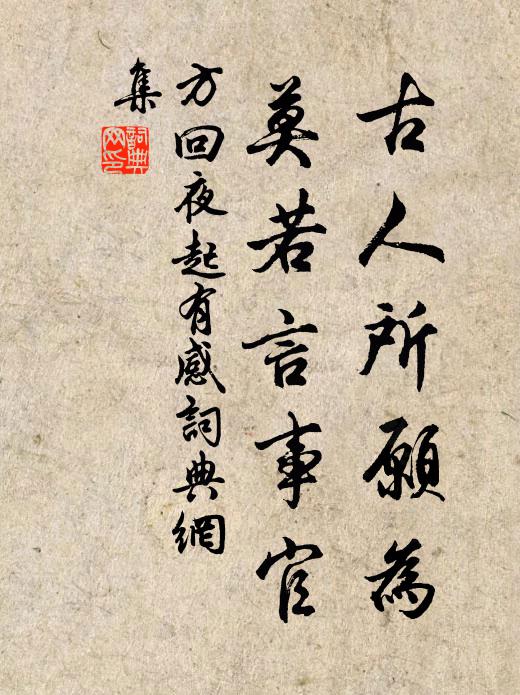 古人所願為
莫若言事官
方回夜起有感詞典網
集
詞典網印